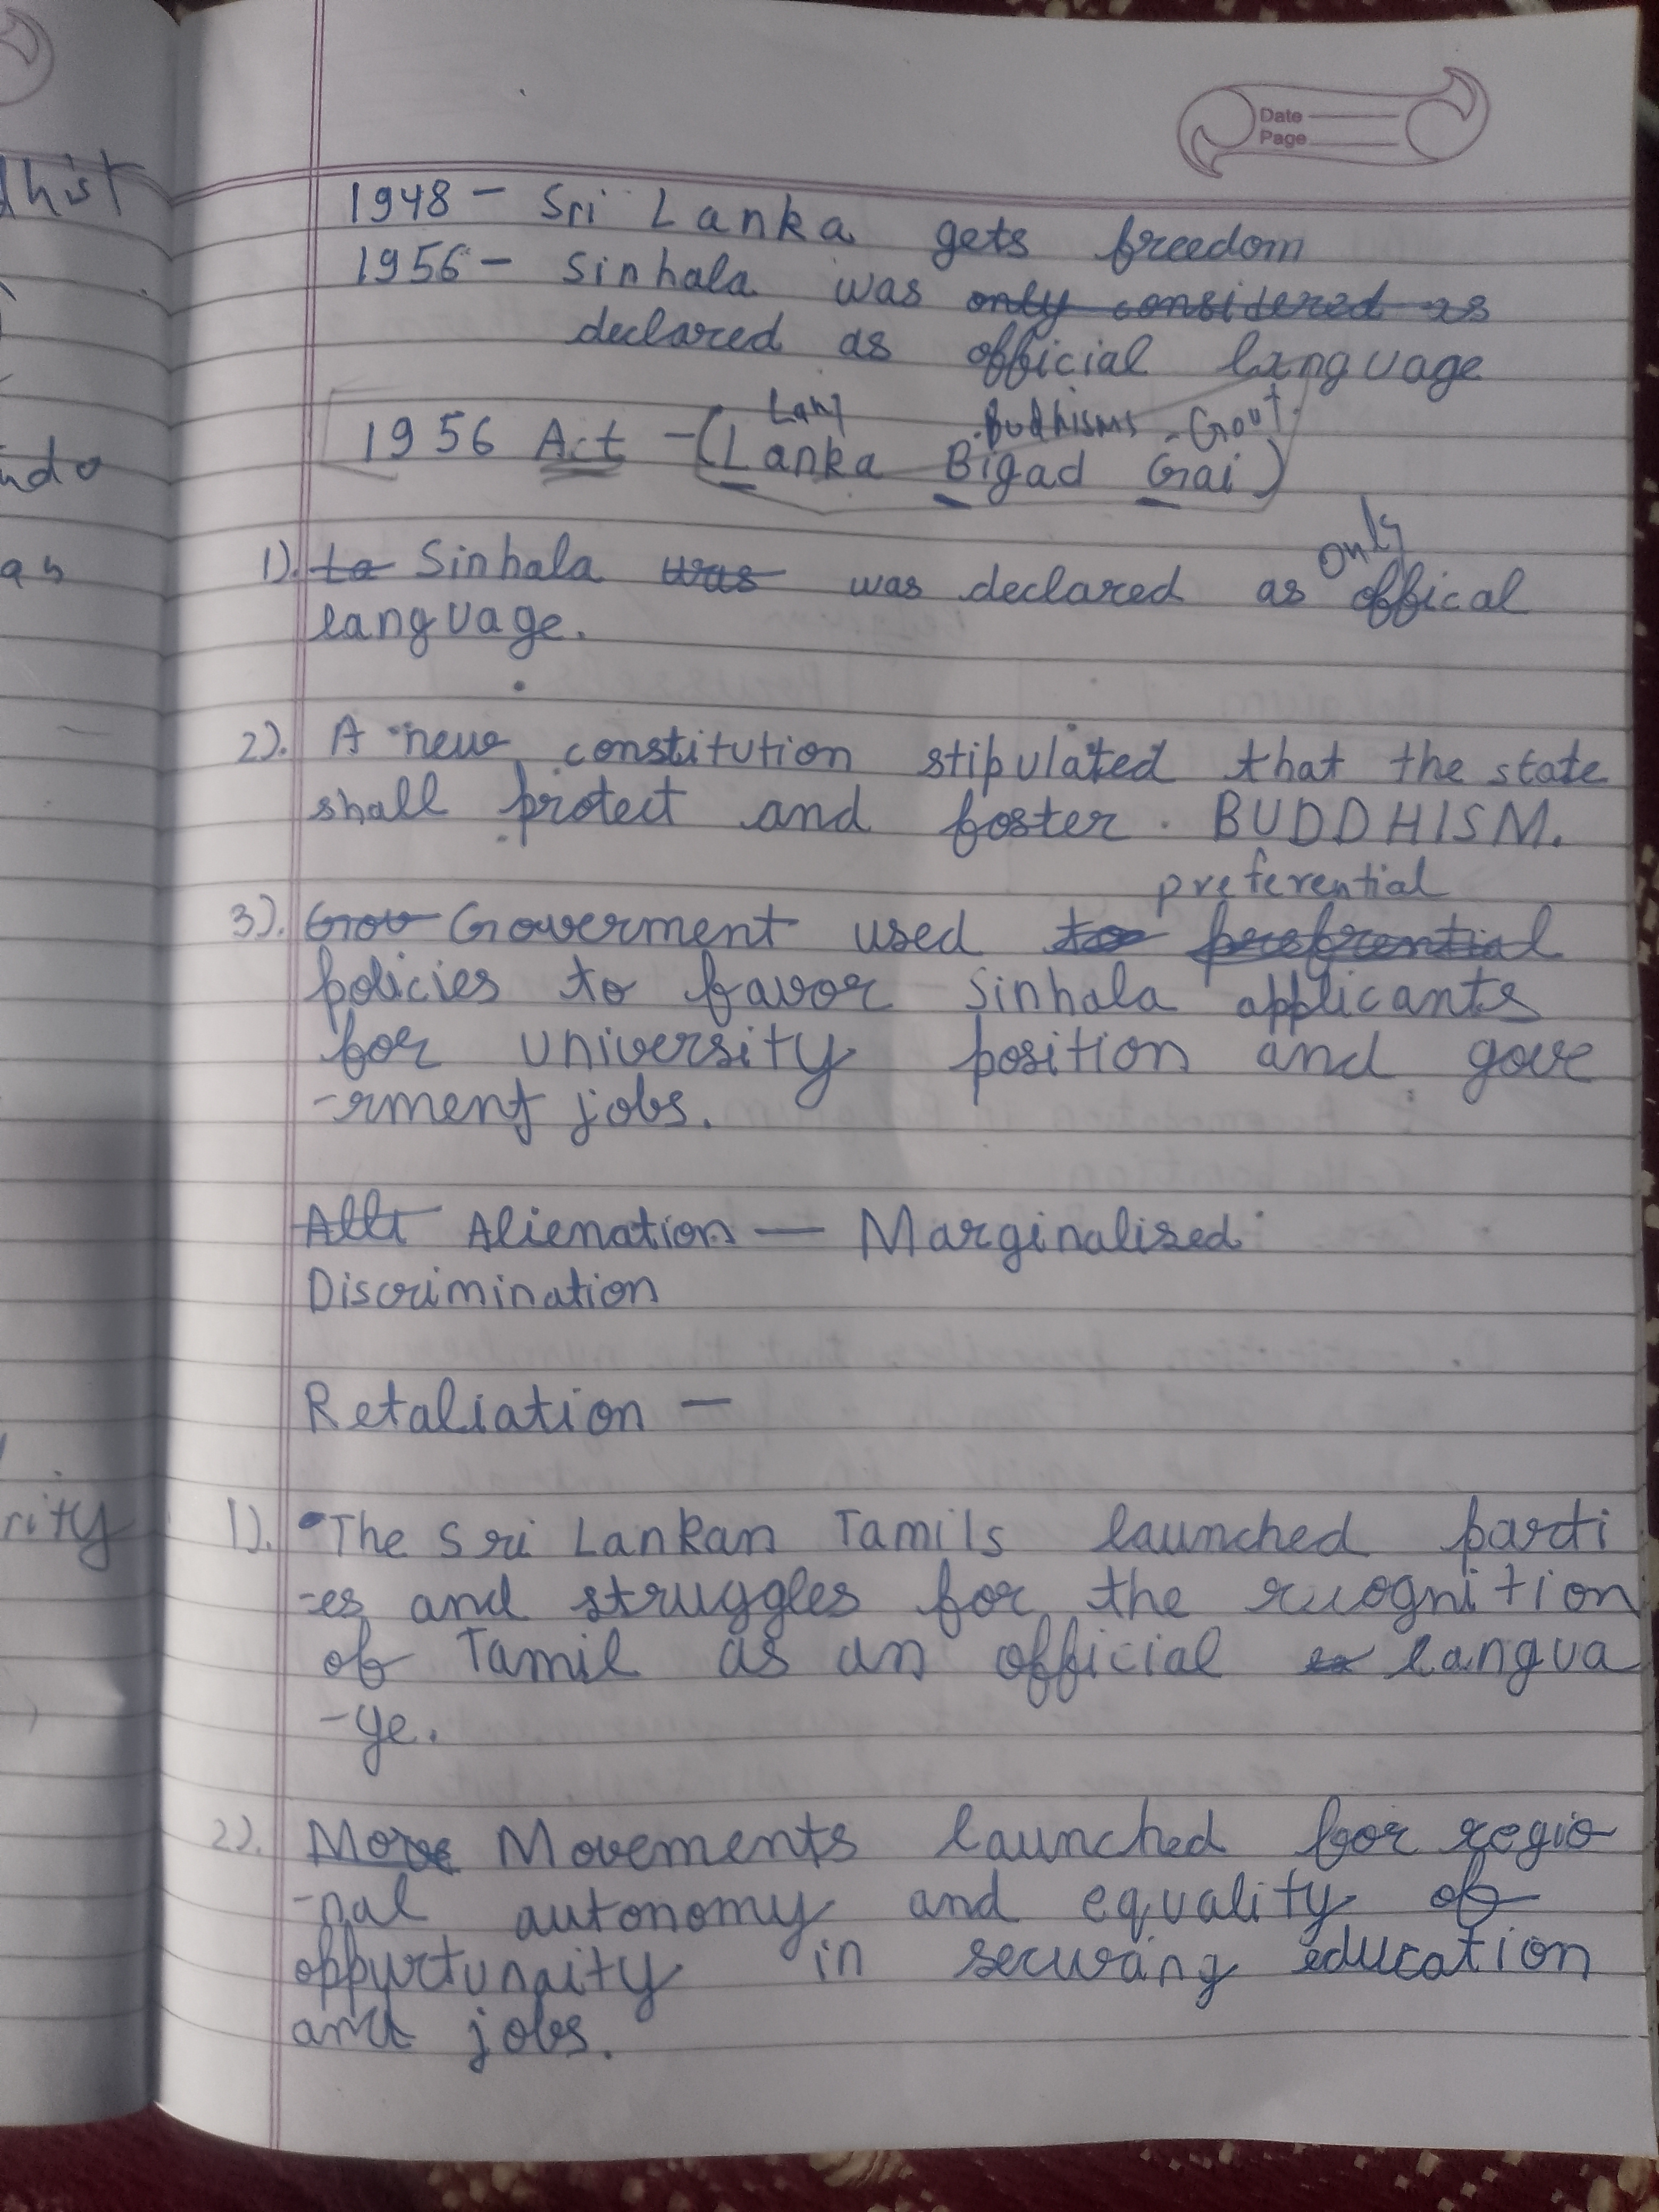 Date
Page
hist
1948 - Sri Lanka gets freedom
1956 - Sinhala was only considered as
declared as official language
Lan Budhisms Govt.
1956 Act - (Lanka Bigad Gai)
only
1). to Sinhala was was declared as offical
language.
2). A new constitution stipulated that the state
shall protect and foster BUDDHISM.
preferential
3). Gov Goverment used to prefrential
policies to favor Sinhala applicants
for university position and gove
-rment jobs.
Alli Alienation — Marginalised
Discrimination
Retaliation —
rity
1). The Sri Lankan Tamils launched parti
-es and struggles for the recognition
of Tamil as an official langua
-ge.
2). Move Movements launched for regio
-nal autonomy and equality of
oppurtunaity in securing education
and jobs.